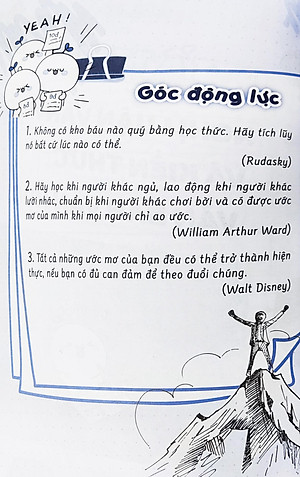 YEAH!
10đ
9đ
Góc động lực
1. Không có kho báu nào quý bằng học thức. Hãy tích lũy
nó bất cứ lúc nào có thể.
(Rudasky)
2. Hãy học khi người khác ngủ, lao động khi người khác
lười nhác, chuẩn bị khi người khác chơi bời và có được ước
mơ của mình khi mọi người chỉ ao ước.
(William Arthur Ward)
3. Tất cả những ước mơ của bạn đều có thể trở thành hiện
thực, nếu bạn có đủ can đảm để theo đuổi chúng.
(Walt Disney)